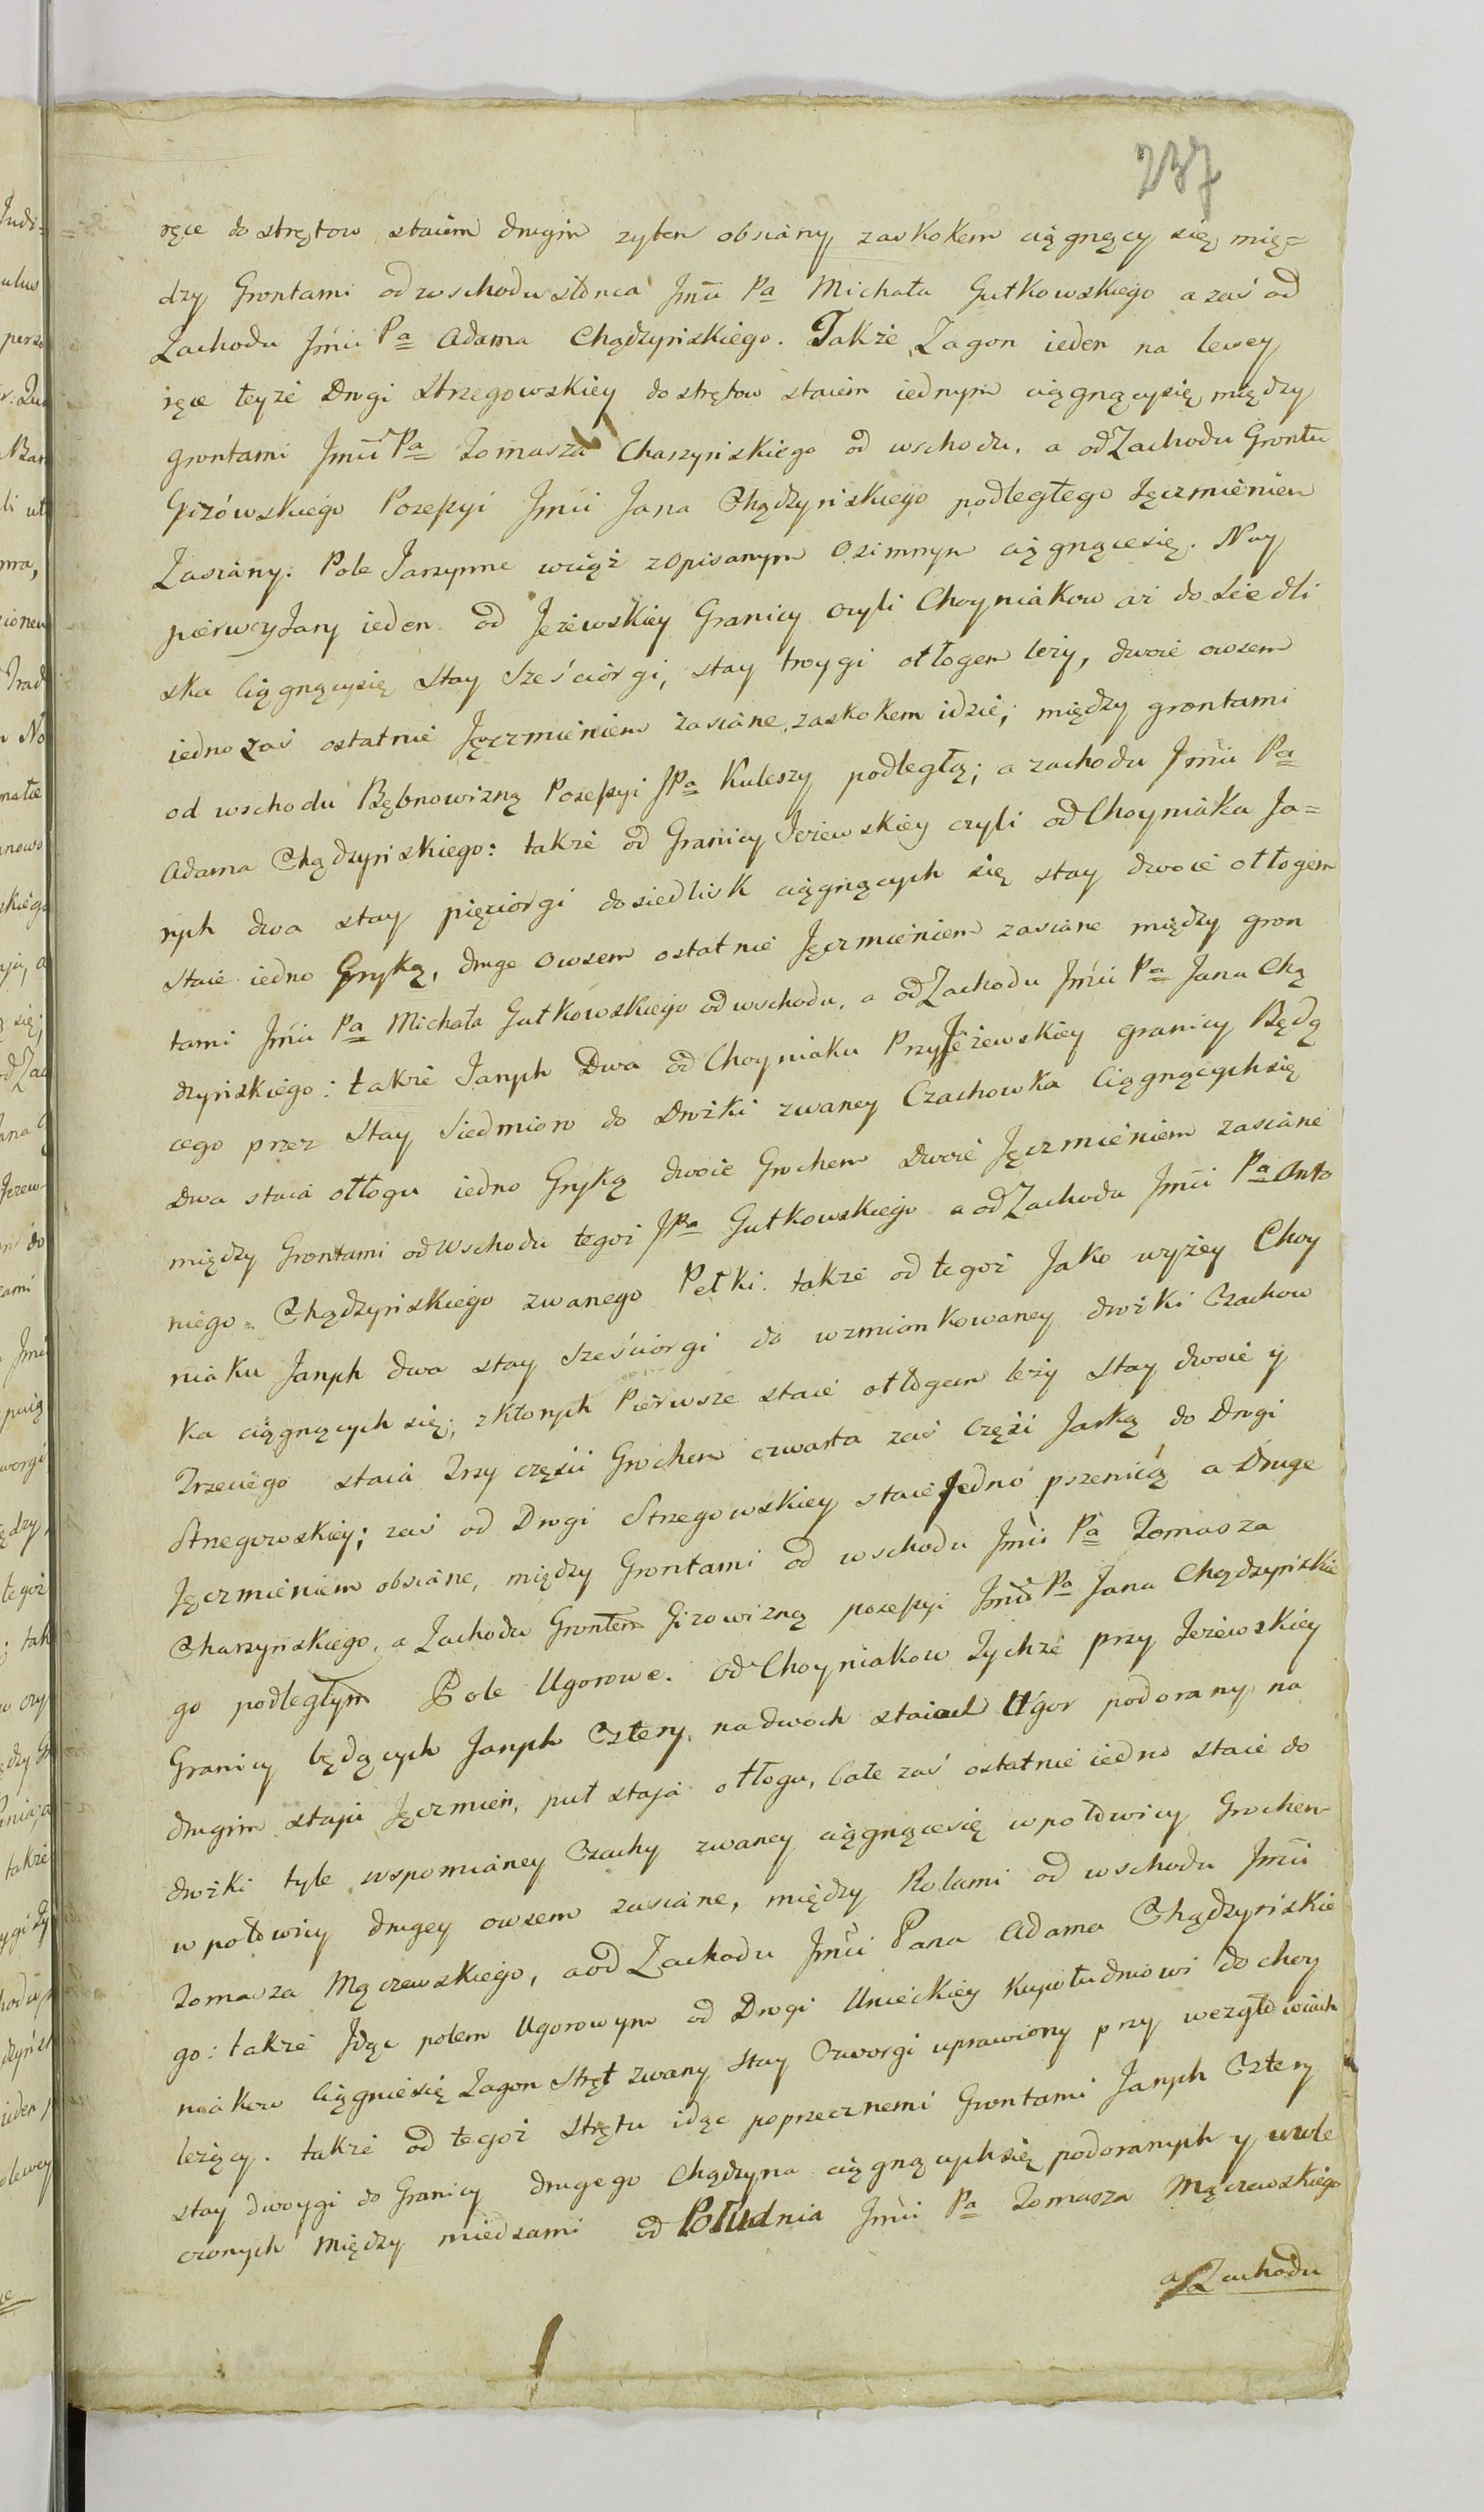 237
ręce do stręтow staiem drugim zytem obsiany zaskokem ciągnęcy się mię=
dzy Grontami od wschodu słonca Jmci Pa Michała Gutkowskiego a zaś od
Zachodu Jmci Pa Adama Chądzyńskiego. Także Zagon ieden na lewey
ręce teyże Drogi Strzegowskiey do strętow staiem iednym ciągnącysię między
grontami Jmci Pa Tomasza Charzyńskiego od wschodu, a od Zachodu Grontu
Gizówskiego Posessyi Jmci Jana Chądzyńskiego podległego Jęczmieniem
Zasiany. Pole Jarzynne wciąż z opisanym Ozimnym ciągnącesię. Nay
pierwczy Jary ieden od Jeżewskiey Granicy czyli Choyniakow aż do Siedli
ska Ciągnącysię stay sześciorgi, stay troygi otłogem leży, dwoie owsem
iedno zaś ostatnie Jęczmieniem zasiane, zaskokem idzie; między grontami
od wschodu Bębnowizną Posessyi JPa Kuleszy podległą; a zachodu Jmci Pa
Adama Chądzyńskiego: także od Granicy Jeżewskiey czyli od Choyniaka Ja=
rych dwa stay pięciorgi do siedlisk ciągnących się stay dwoie otłogem
staie iedno Gryką, druge Owsem ostatnie Jęczmieniem zasiane między gron
tami Jmci Pa Michała Gutkowskiego od wschodu, a od Zachodu Jmci Pa Jana Chą
dzyńskiego: także Jarych Dwa od Choyniaku Przy Jeżewskiey granicy Będą
cego przez Stay Siedmioro do Drożki zwaney Czachowka Ciągnącychsię
Dwa staia otłogu iedno Gryką dwoie Grochem Dwoie Jęczmieniem zasiane
między Grontami od Wschodu tegoż JPa Gutkowskiego a od Zachodu Jmci Pa Anto
niego Chądzyńskiego zwanego Pełki. także od tegoż Jako wyżey Choy
niaku Jarych dwa stay sześciorgi do wzmiankowaney drożki Czachow
ka ciągnących się; z ktorych Pierwsze staie otłogem leży Stay dwoie y
Trzeciego staia Trzy części Grochem czwarta zaś Część Jarką do Drogi
Strzegowskiey; zaś od Drogi Strzegowskiey staie Jedno pszenicą a Druge
Jęczmieniem obsiane, między Grontami od wschodu Jmci Pa Tomasza
Charzyńskiego, a Zachodu Grontem Gizowizną posessyi Jmci Pa Jana Chądzyńskie
go podległym Pole Ugorowe. od Choyniakow Tychże przy Jeżewskiey
Granicy będących Jarych Cztery, na dwoch staiach Ugor podorany na
drugim staju Jęczmień, puł staja otłogu, Całe zaś ostatnie iedno staie do
drożki tyle wspomnianey Czachy zwaney ciągnącesię w połowicy Grochem
w połowicy drugey owsem zasiane, między Rolami od wschodu Jmci
Tomasza Mączewskiego, a od Zachodu Jmci Pana Adama Chądzyńskie
go: także Idąc polem Ugorowym od Drogi Unieckiey Kupołudniowi do choy
niakow Ciągniesię Zagon Stręt zwany Stay Czworgi uprawiony przy wezgłowiach
leżący. także od tegoż Strętu idąc poprzecznemi Grontami Jarych Cztery
stay dwoygi do Granicy drugego Chądzyna ciągnącychsię podoranych y uwle
czonych między miedzami od Południa Jmci Pa Tomasza Mączewskiego
a Zachodu